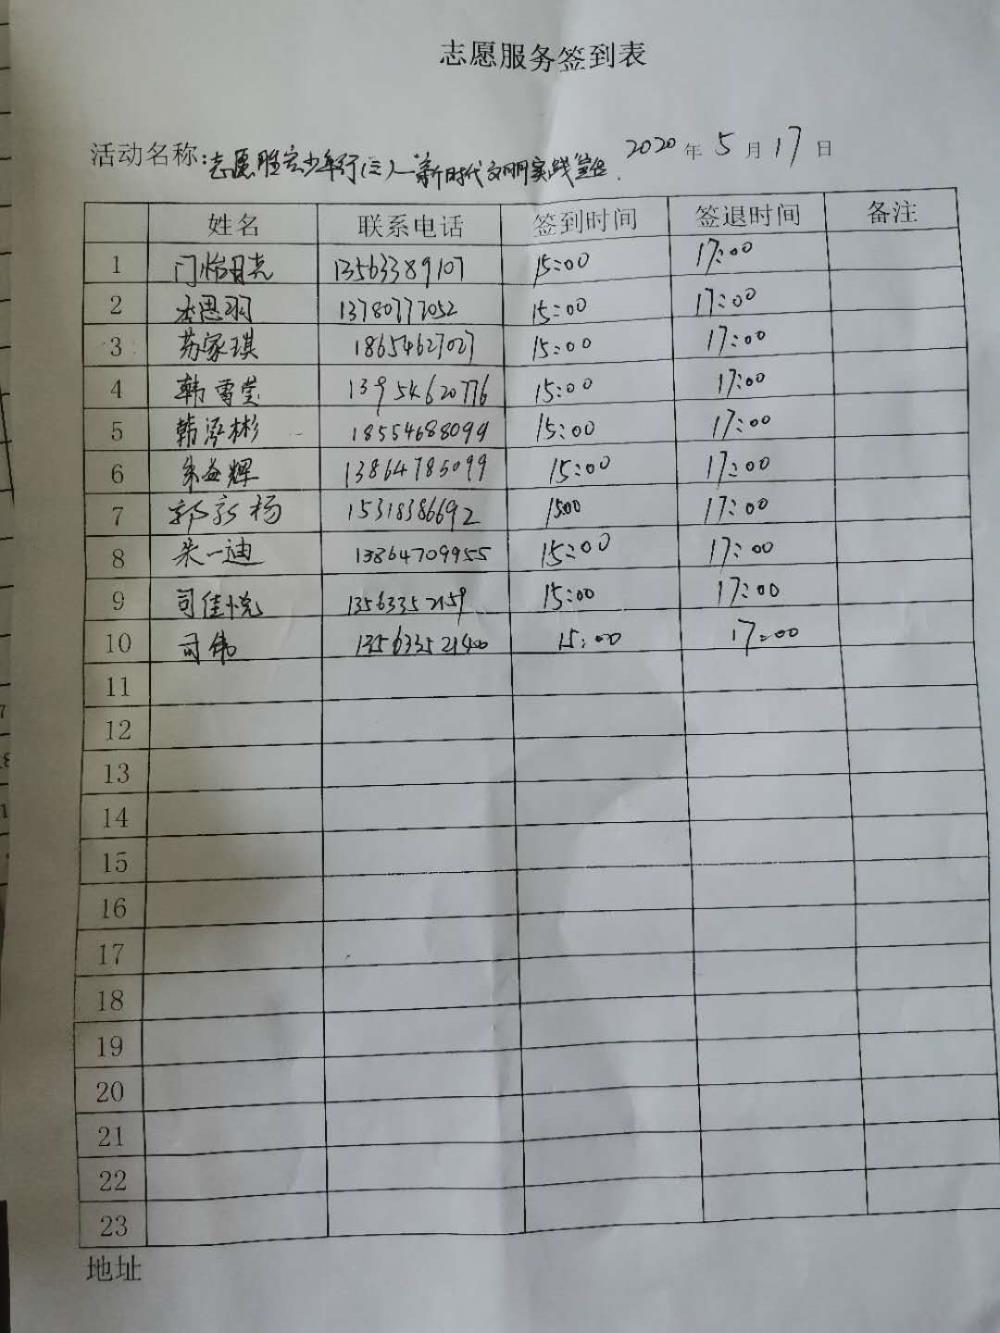 志愿服务签到表
活动名称:志愿胜宏少年行(三)—新时代文明实践 2020年5月17日
姓名 联系电话 签到时间 签退时间 备注
1 门怡 13563389107 15:00 17:00
2 思羽 13780777052 15:00 17:00
3 苏家琪 18654627027 15:00 17:00
4 韩雪莹 13954620776 15:00 17:00
5 韩泓彬 18554688099 15:00 17:00
6 朱益辉 13864785099 15:00 17:00
7 郭新杨 15318386692 1500 17:00
8 朱一迪 13864709955 15:00 17:00
9 司佳悦 13563352159 15:00 17:00
10 司伟 135633521400 15:00 17:00
11
12
13
14
15
16
17
18
19
20
21
22
23
地址